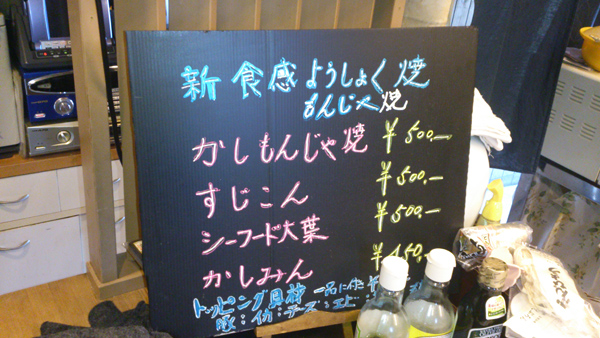 新食感ようしょく焼
もんじゃ焼
かしもんじゃ焼 ¥500.―
すじこん ¥500.―
シーフード大葉 ¥500.―
かしみん ¥450.―
トッピング具材 一品に付き ¥
豚:イカ:チーズ:エビ: